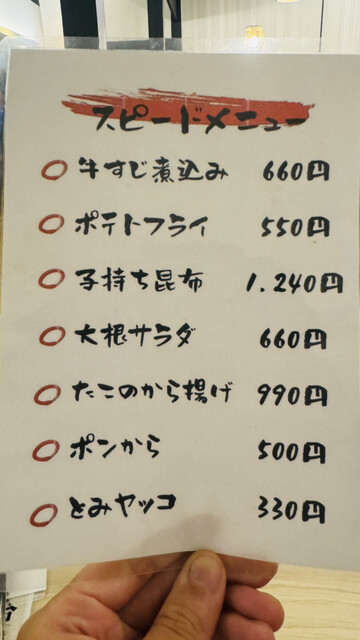 スピードメニュー
牛すじ煮込み 660円
ポテトフライ 550円
子持ち昆布 1.240円
大根サラダ 660円
たこのから揚げ 990円
ポンから 500円
とみヤッコ 330円